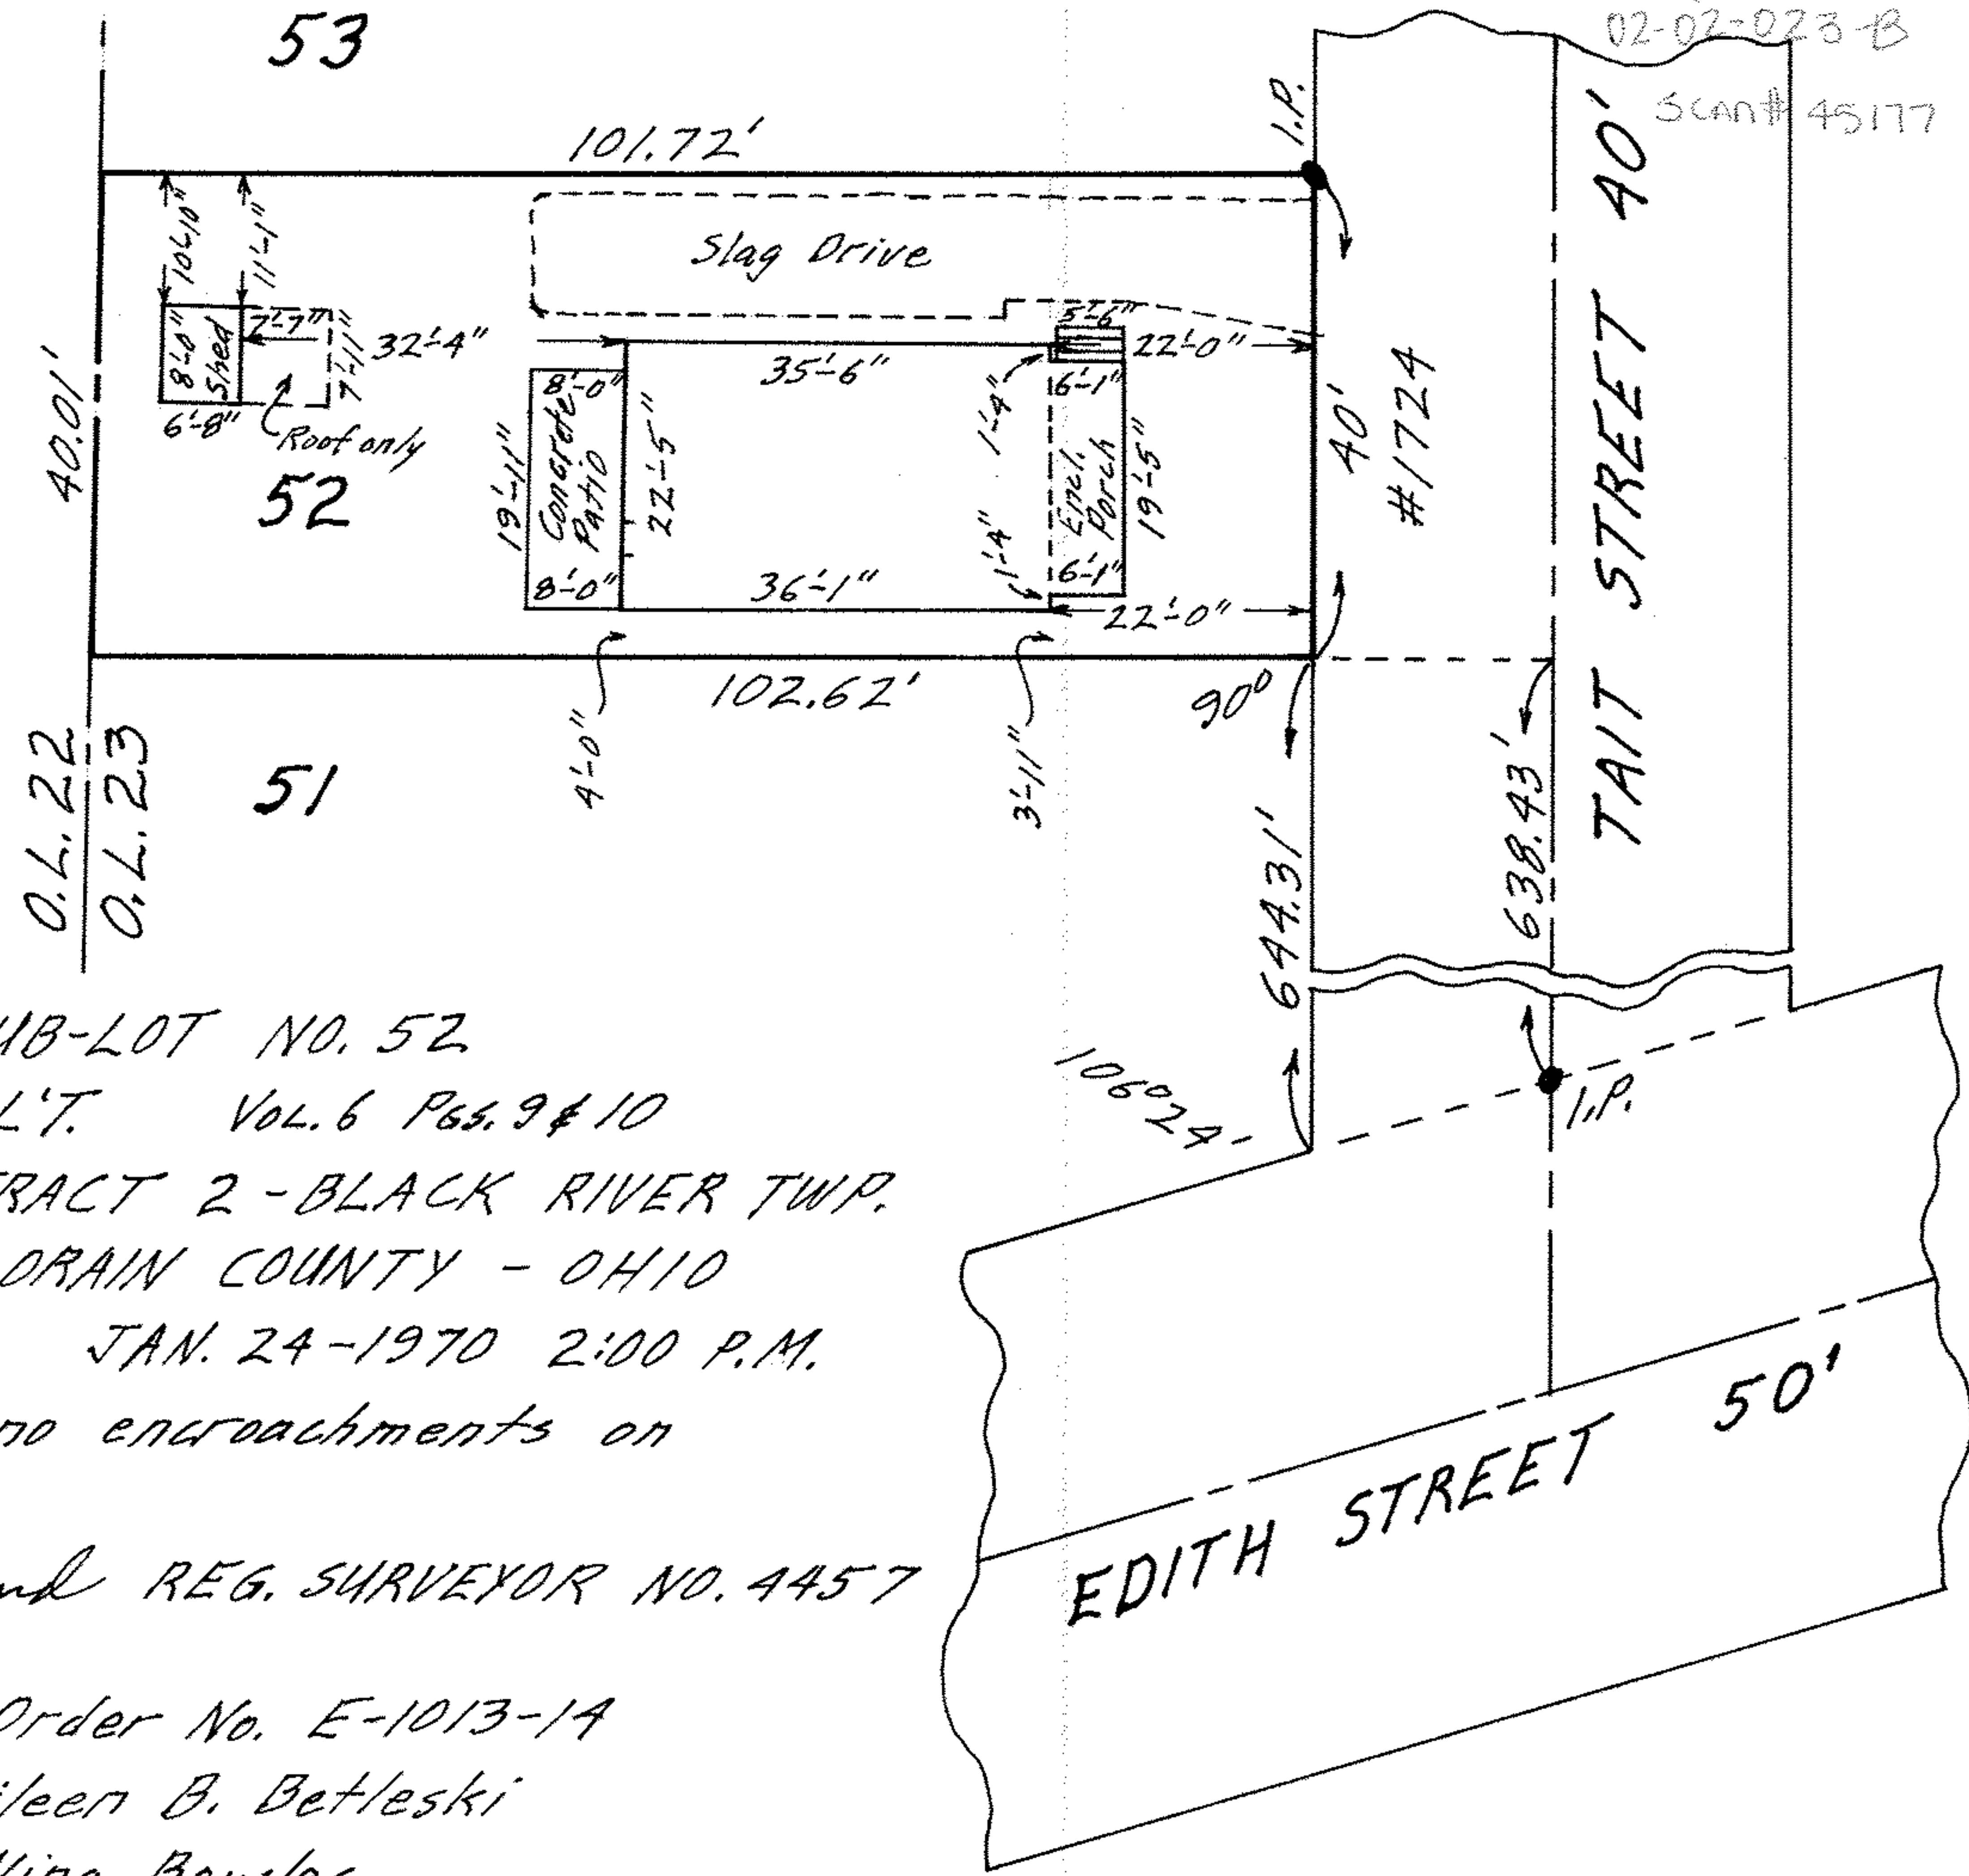 02-02-023-B
SCAN# 45177
53
101.72'
I.P.
TAIT STREET 40'
10'-10"
11'-1"
Slag Drive
8'-0"
Shed
7'-7"
7'-11"
32'-4"
6'-8"
Roof only
40.01'
52
5'-6"
22'-0"
35'-6"
8'-0"
Concrete
Patio
19'-11"
22'-5"
8'-0"
36'-1"
1'-4"
6'-1"
Encl.
Porch
19'-5"
1'-4"
6'-1"
22'-0"
40'
#1724
102.62'
90°
4'-0"
3'-11"
O.L. 22
O.L. 23
51
644.31'
638.43'
106°24'
I.P.
UB-LOT NO. 52
L'T. VOL. 6 PGS. 9 & 10
RACT 2 - BLACK RIVER TWP.
ORAIN COUNTY - OHIO
JAN. 24 - 1970 2:00 P.M.
no encroachments on
nd REG. SURVEYOR NO. 4457
Order No. E-1013-14
ileen B. Betleski
EDITH STREET 50'